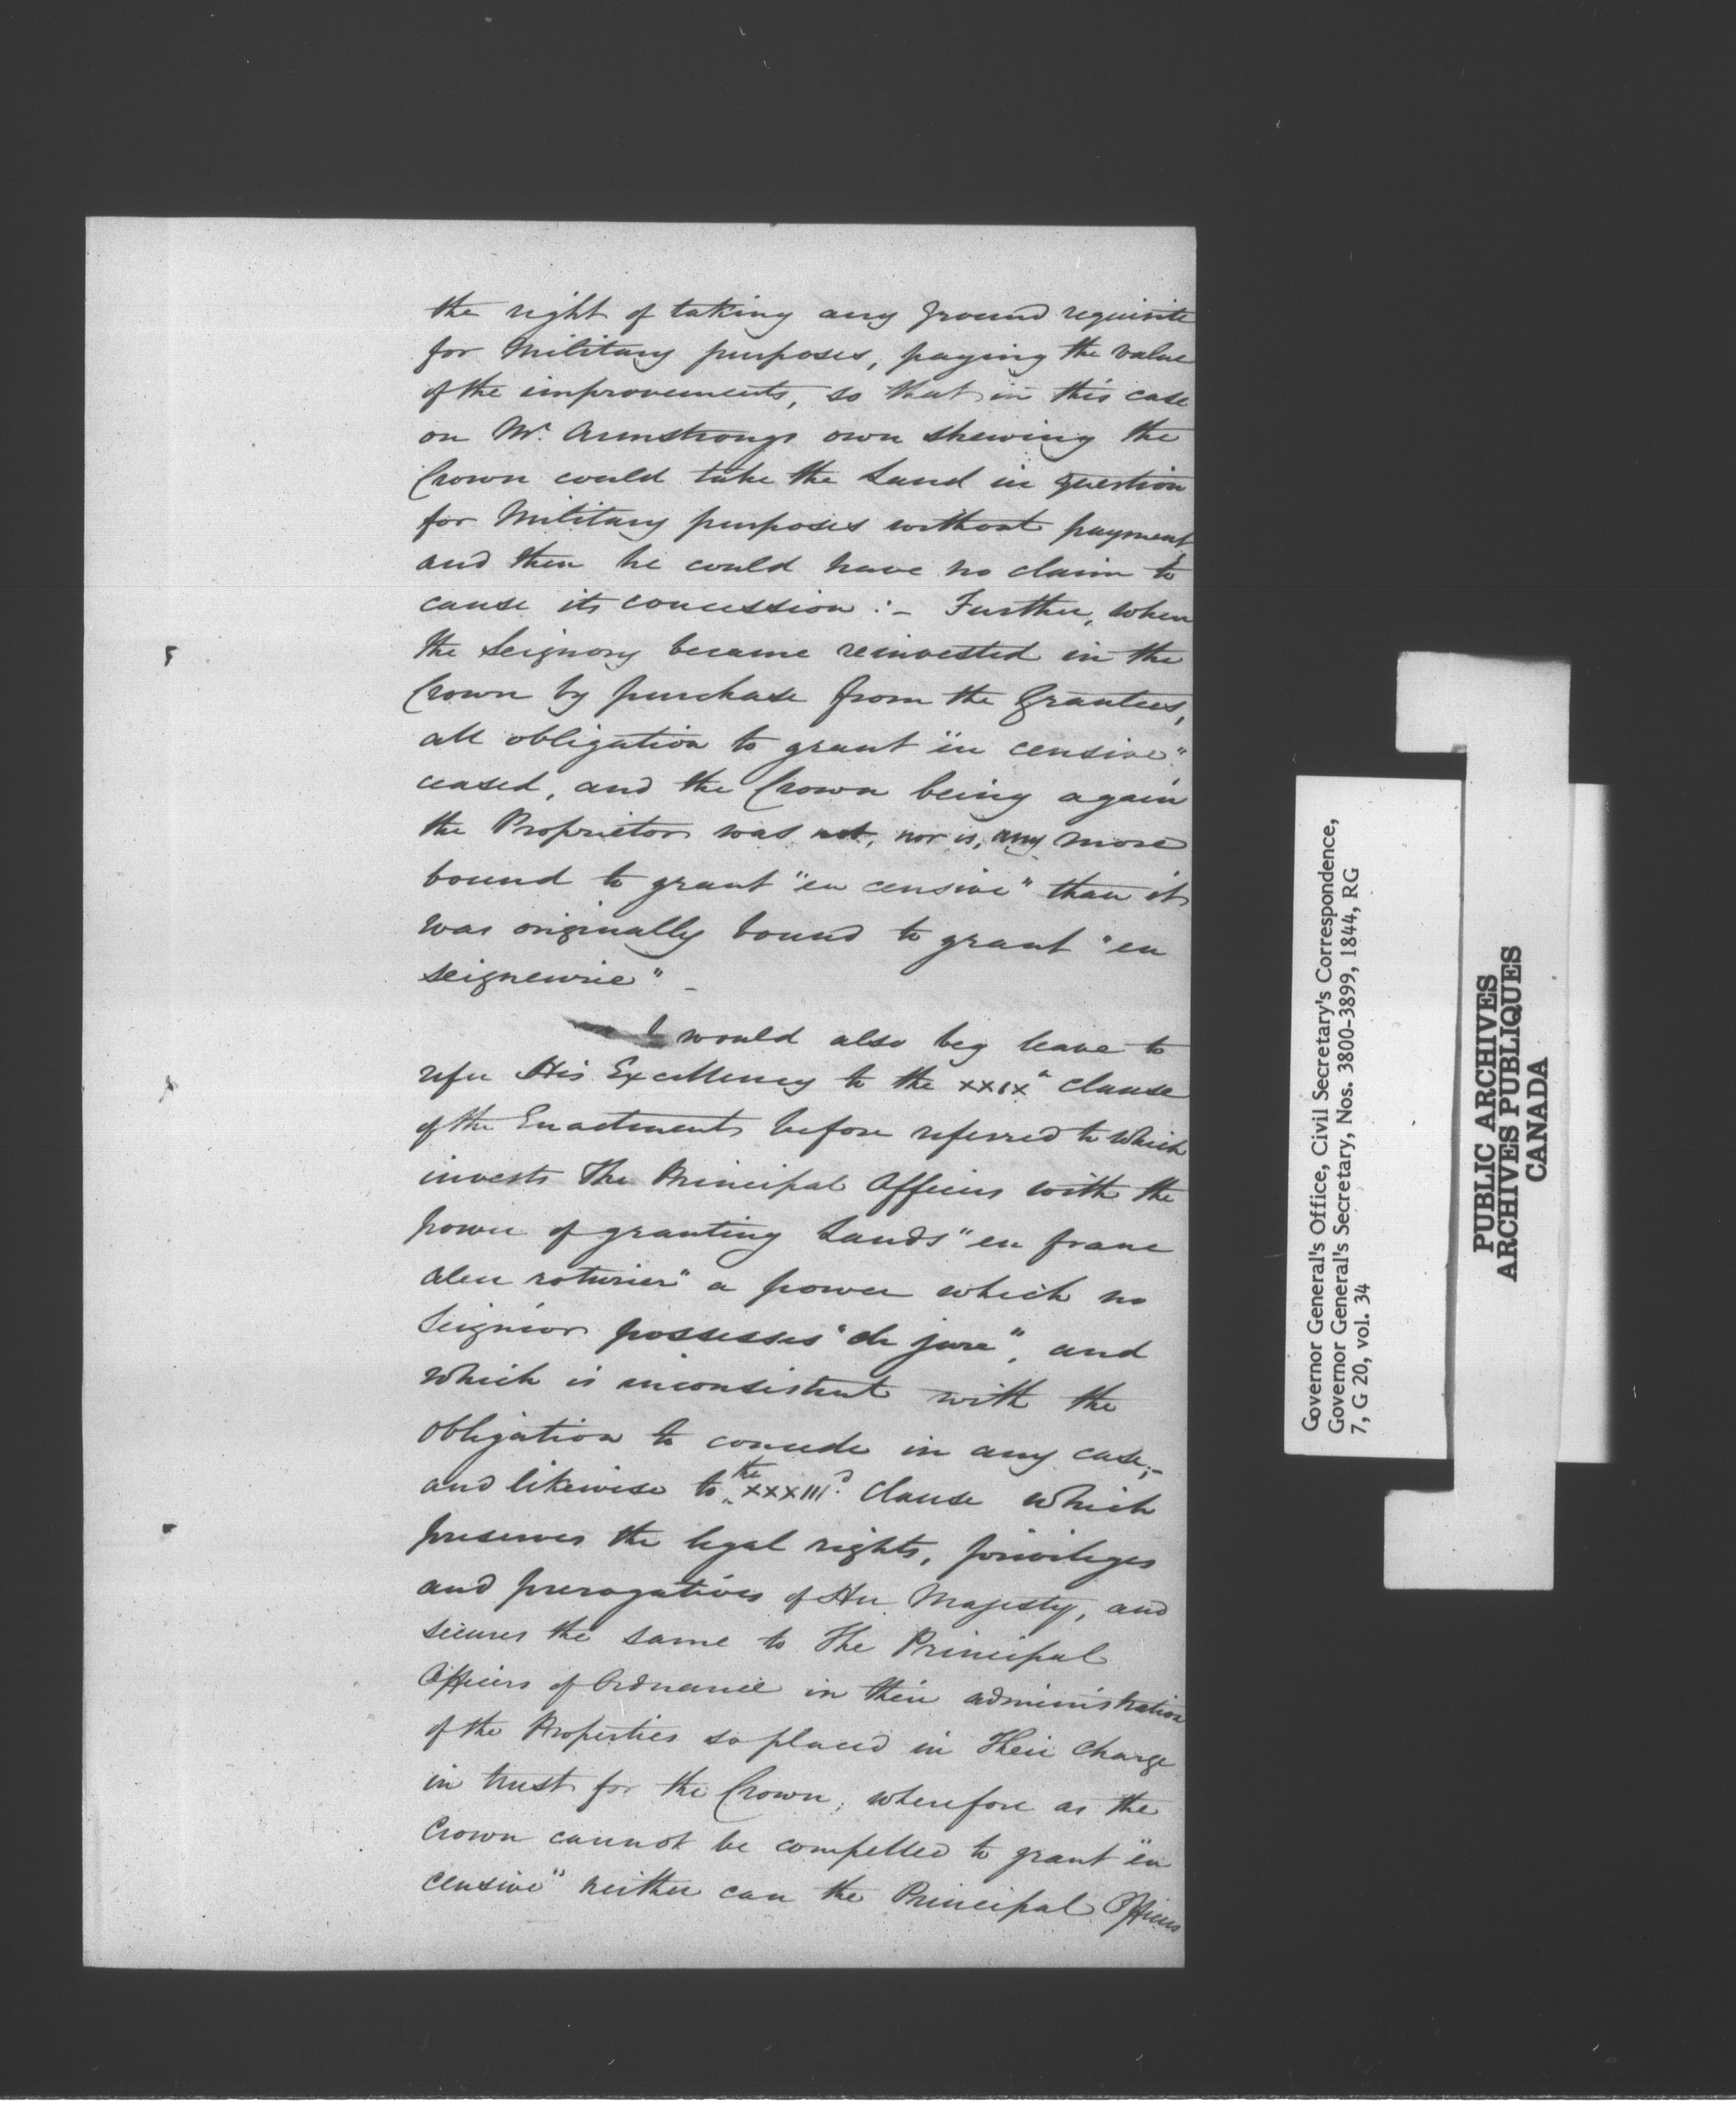 the right of taking any ground requisite
for Military purposes, paying the value
of the improvements, so that in this case
on Mr. Armstrongs own shewing the
Crown could take the Land in question
for Military purposes without payment,
and then he could have no claim to
cause its concession :- Further, when
the Seignory became reinvested in the
Crown by purchase from the Grantees,
all obligation to grant "en censive"
ceased, and the Crown being again
the Proprietor was not, nor is, any more
bound to grant "en censive" than it
was originally bound to grant "en
seigneurie" -
I would also beg leave to
refer His Excellency to the XXIXth clause
of the Enactment before referred to which
invests The Principal Officers with the
power of granting Lands "en franc
aleu roturier" a power which no
Seignior possesses "de jure", and
which is inconsistent with the
obligation to concede in any case,-
and likewise to the XXXIIId. Clause which
preserves the legal rights, privileges
and prerogatives of Her Majesty, and
secures the same to The Principal
Officers of Ordnance in their administration
of the Properties so placed in Their Charge
in trust for the Crown; wherefore as the
Crown cannot be compelled to grant "en
censive" neither can the Principal Officers
Governor General's Office, Civil Secretary's Correspondence,
Governor General's Secretary, Nos. 3800-3899, 1844, RG
7, G 20, vol. 34
PUBLIC ARCHIVES
ARCHIVES PUBLIQUES
CANADA